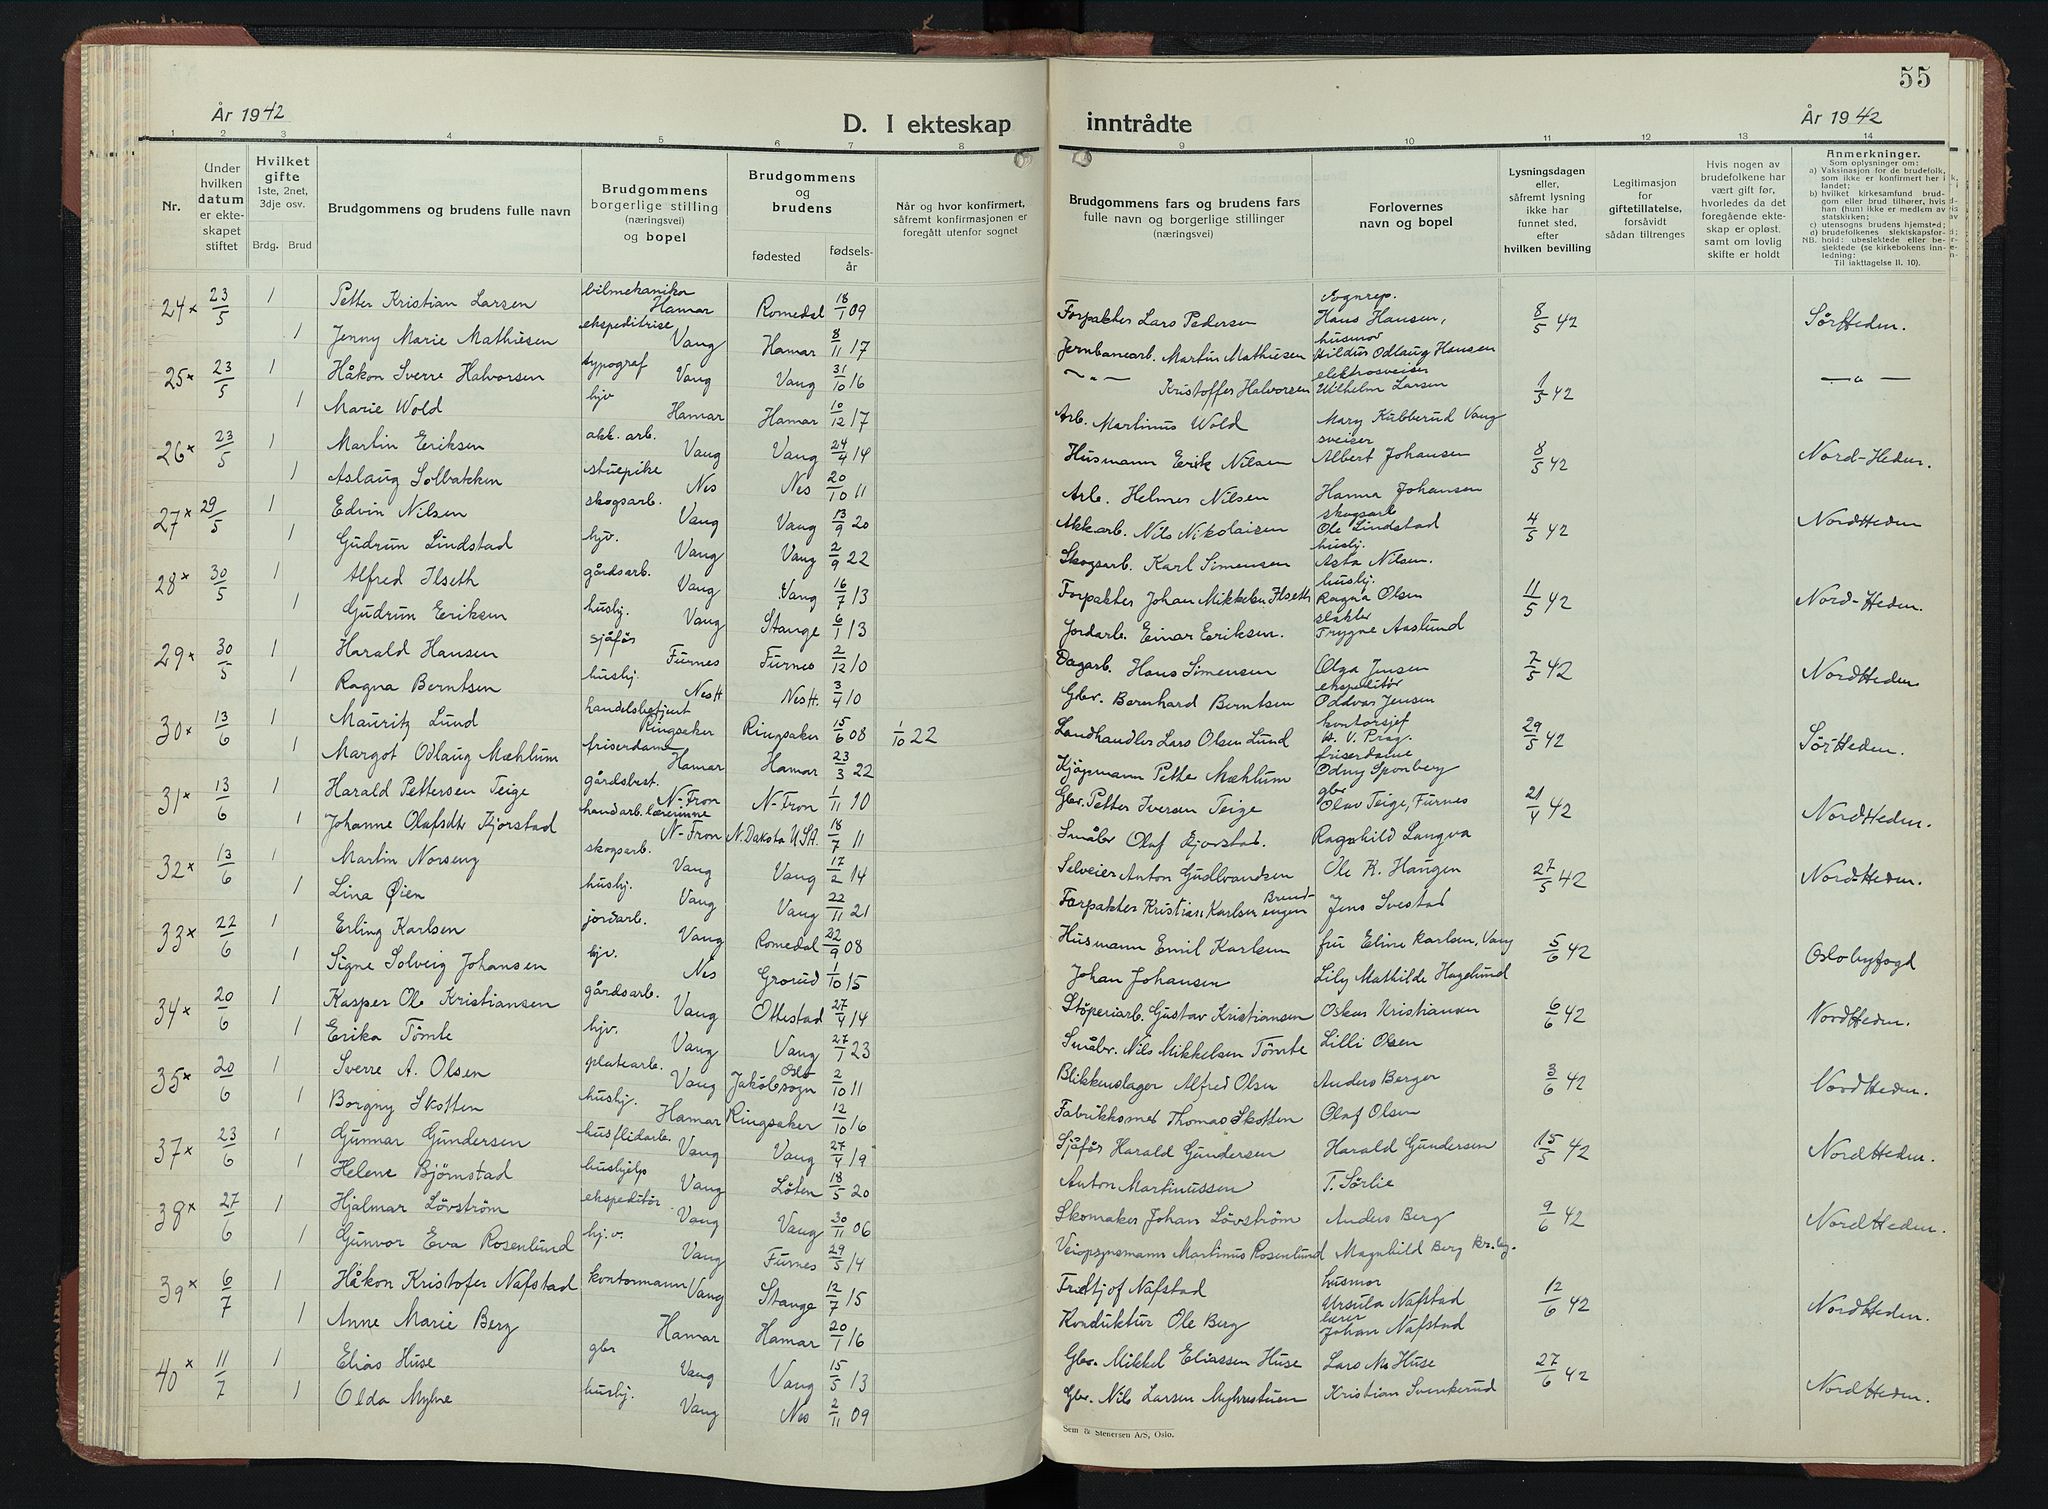 55
År 1942
D. I ekteskap inntrådte
År 1942
1 2 3 4 5 6 7 8 9 10 11 12 13 14
Nr.
Under hvilken datum er ekteskapet stiftet
Hvilket gifte 1ste, 2net, 3dje osv.
Brdg. Brud
Brudgommens og brudens fulle navn
Brudgommens borgerlige stilling (næringsvei) og bopel
Brudgommens og brudens
fødested
fødselsår
Når og hvor konfirmert, såfremt konfirmasjonen er foregått utenfor sognet
Brudgommens fars og brudens fars fulle navn og borgerlige stillinger (næringsvei)
Forlovernes navn og bopel
Lysningsdagen eller, såfremt lysning ikke har funnet sted, efter hvilken bevilling
Legitimasjon for giftetillatelse, forsåvidt sådan tiltrenges
Hvis nogen av brudefolkene har vært gift før, hvorledes da det foregående ekteskap er opløst, samt om lovlig skifte er holdt
Anmerkninger.
Som oplysninger om:
a) Vaksinasjon for de brudefolk, som ikke er konfirmert her i landet;
b) hvilket kirkesamfund brudgom eller brud tilhører, hvis han (hun) ikke er medlem av statskirken;
c) utensogns brudens hjemsted;
d) brudefolkenes slektskapsforhold: ubeslektede eller beslektede (se kirkebokens innledning:
NB.
Til iakttagelse II. 10).
24 x 23/5 1 Petter Kristian Larsen bilmekaniker Hamar Romedal 18/1 09 Forpakter Lars Pedersen Sognrep. Hans Hansen, 8/5 42 Sør Heden.
1 Jenny Marie Mathiesen ekspeditrise Vang Hamar 8/11 17 Jernbanearb. Martin Mathiesen husmor Hildur Odlaug Hansen
25 x 23/5 1 Håkon Sverre Halvorsen typograf Vang Vang 31/10 16 — " — Kristoffer Halvorsen elektrosveiser Wilhelm Larsen 1/5 42 — " —
1 Marie Wold hjv Hamar Hamar 10/12 17 Arb. Martinus Wold Mary Kubberud Vang
26 x 23/5 1 Martin Eriksen akk. arb. Vang Vang 24/4 14 Husmann Erik Nilsen sveiser Albert Johansen 8/5 42 Nord-Heden.
1 Aslaug Solbakken stuepike Nes Nes 20/10 11 Arb. Helmer Nilsen Hanna Johansen
27 x 29/5 1 Edvin Nilsen skogsarb. Vang Vang 13/9 20 Akkarb. Nils Nikolaisen skogsarb Ole Lindstad 4/5 42 Nord Heden
1 Gudrun Lindstad hjv. Vang Vang 2/9 22 Skogsarb. Karl Simensen husbj. Asta Nilsen.
28 x 30/5 1 Alfred Ilseth gårdsarb. Vang Vang 16/7 13 Forpakter Johan Mikkelsen Ilseth husbj. Ragna Olsen 11/5 42 Nord-Heden.
1 Gudrun Eriksen husbj. Vang Stange 6/1 13 Jordarb. Einar Eriksen. slakter Trygve Aaslund
29 x 30/5 1 Harald Hansen sjåfør Furnes Furnes 2/12 10 Dagarb. Hans Simensen Olga Jensen 7/5 42 Nord Heden
1 Ragna Berntsen husbj. Nes H Nes H. 3/4 10 Gbr. Bernhard Berntsen ekspeditør Oddvar Jensen
30 x 13/6 1 Mauritz Lund handelsbetjent Ringsaker Ringsaker 15/6 08 1/10 22 Landhandler Lars Olsen Lund kontorsjef H. V. Prag. 29/5 42 Sør Heden.
1 Margot Odlaug Mæhlum friserdame Hamar Hamar 23/3 22 Kjøpmann Petter Mæhlum friserdame Odny Sponberg
31 x 13/6 1 Harald Pettersen Teige gårdsbest. N-Fron N-Fron 1/11 10 Gbr. Petter Iversen Teige gbr Olav Teige, Furnes 21/4 42 Nord Heden.
1 Johanne Olafsdtr Kjorstad handarb. lærerinne N-Fron N. Dakota U.S.A. 18/7 11 Småbr Olaf Kjorstad. Ragnhild Langva
32 x 13/6 1 Martin Norseng skogsarb. Vang Vang 17/2 14 Selveier Anton Gudbrandsen Ole K. Haugen 27/5 42 Nord-Heden.
1 Lina Øien husbj. Vang Vang 22/11 21 Forpakter Kristian Karlsen Jens Svestad
33 x 22/6 1 Erling Karlsen jordarb. Vang Romedal 22/9 08 Husmann Emil Karlsen fru Eline Karlsen, Vang 5/6 42 Oslo byfogd
1 Signe Solveig Johansen hjv. Nes Grorud 1/10 15 Johan Johansen Lily Mathilde Hagelund
34 x 20/6 1 Kasper Ole Kristiansen gårdsarb. Vang Ottestad 27/4 14 Støperiarb. Gustav Kristiansen Oskar Kristiansen 6/6 42 Nord Heden.
1 Erika Tømte hjv. Vang Vang 27/1 23 Småbr. Nils Mikkelsen Tømte Lilli Olsen
35 x 20/6 1 Sverre A. Olsen platearb. Vang Jakobsogn Oslo 2/10 11 Blikkenslager Alfred Olsen Anders Berger 3/6 42 Nord Heden.
1 Borgny Skotten husbj. Hamar Ringsaker 12/10 16 Fabrikksmed Thomas Skotten Olaf Olsen
37 x 23/6 1 Gunnar Gundersen husflidarb. Vang Vang 27/4 19 Sjåfør Harald Gundersen Harald Gundersen 15/5 42 Nord Heden.
1 Helene Bjørnstad hushjelp Vang Løten 18/5 20 Anton Martinussen T. Sørlie
38 x 27/6 1 Hjalmar Løvstrøm ekspeditør Vang Vang 30/11 06 Skomaker Johan Løvstrøm Anders Berg 9/6 42 Nord Heden.
1 Gunvor Eva Rosenlund hj.v. Vang Furnes 29/5 14 Veiopsynsmann Martinus Rosenlund Magnhild Berg
39 x 6/7 1 Håkon Kristofer Nafstad kontormann Vang Stange 12/7 15 Fridtjof Nafstad husmor Ursula Nafstad 12/6 42 Nord Heden.
1 Anne Marie Berg Hamar Hamar 20/1 16 Konduktør Ole Berg lærer Johan Nafstad
40 x 11/7 1 Elias Huse gbr Vang Vang 15/5 13 Gbr. Mikkel Eliassen Huse Lars M. Huse 27/6 42 Nord Heden.
1 Olda Myhre husbj. Vang Nes 2/11 09 Gbr. Nils Larsen Myhrestuen Kristian Svenkerud
Sem & Stenersen A/S, Oslo.